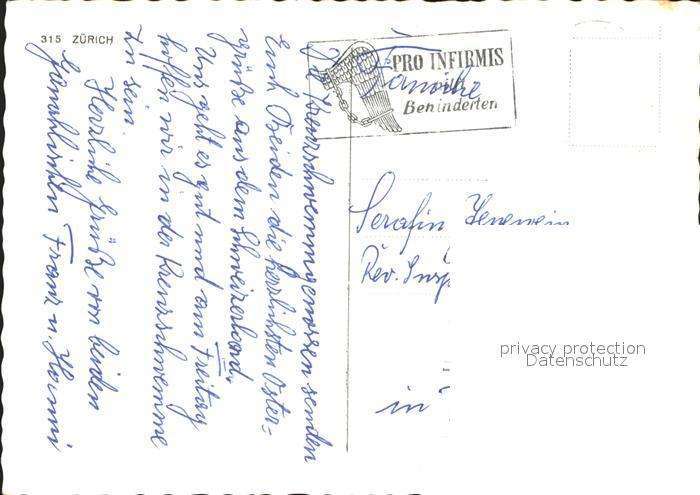 315 ZÜRICH
Die Krenschwemmgenossen senden
Euch Beiden die herzlichsten Oster-
grüße aus dem Schweizerland.
Uns geht es gut und am Freitag
hoffen wir in der Krenschwemme
zu sein.
Herzliche Grüße von beiden
Franz u. Hermi
PRO INFIRMIS
Behinderten
Familie
Serafin
Rev. Insp.
in
privacy protection
Datenschutz